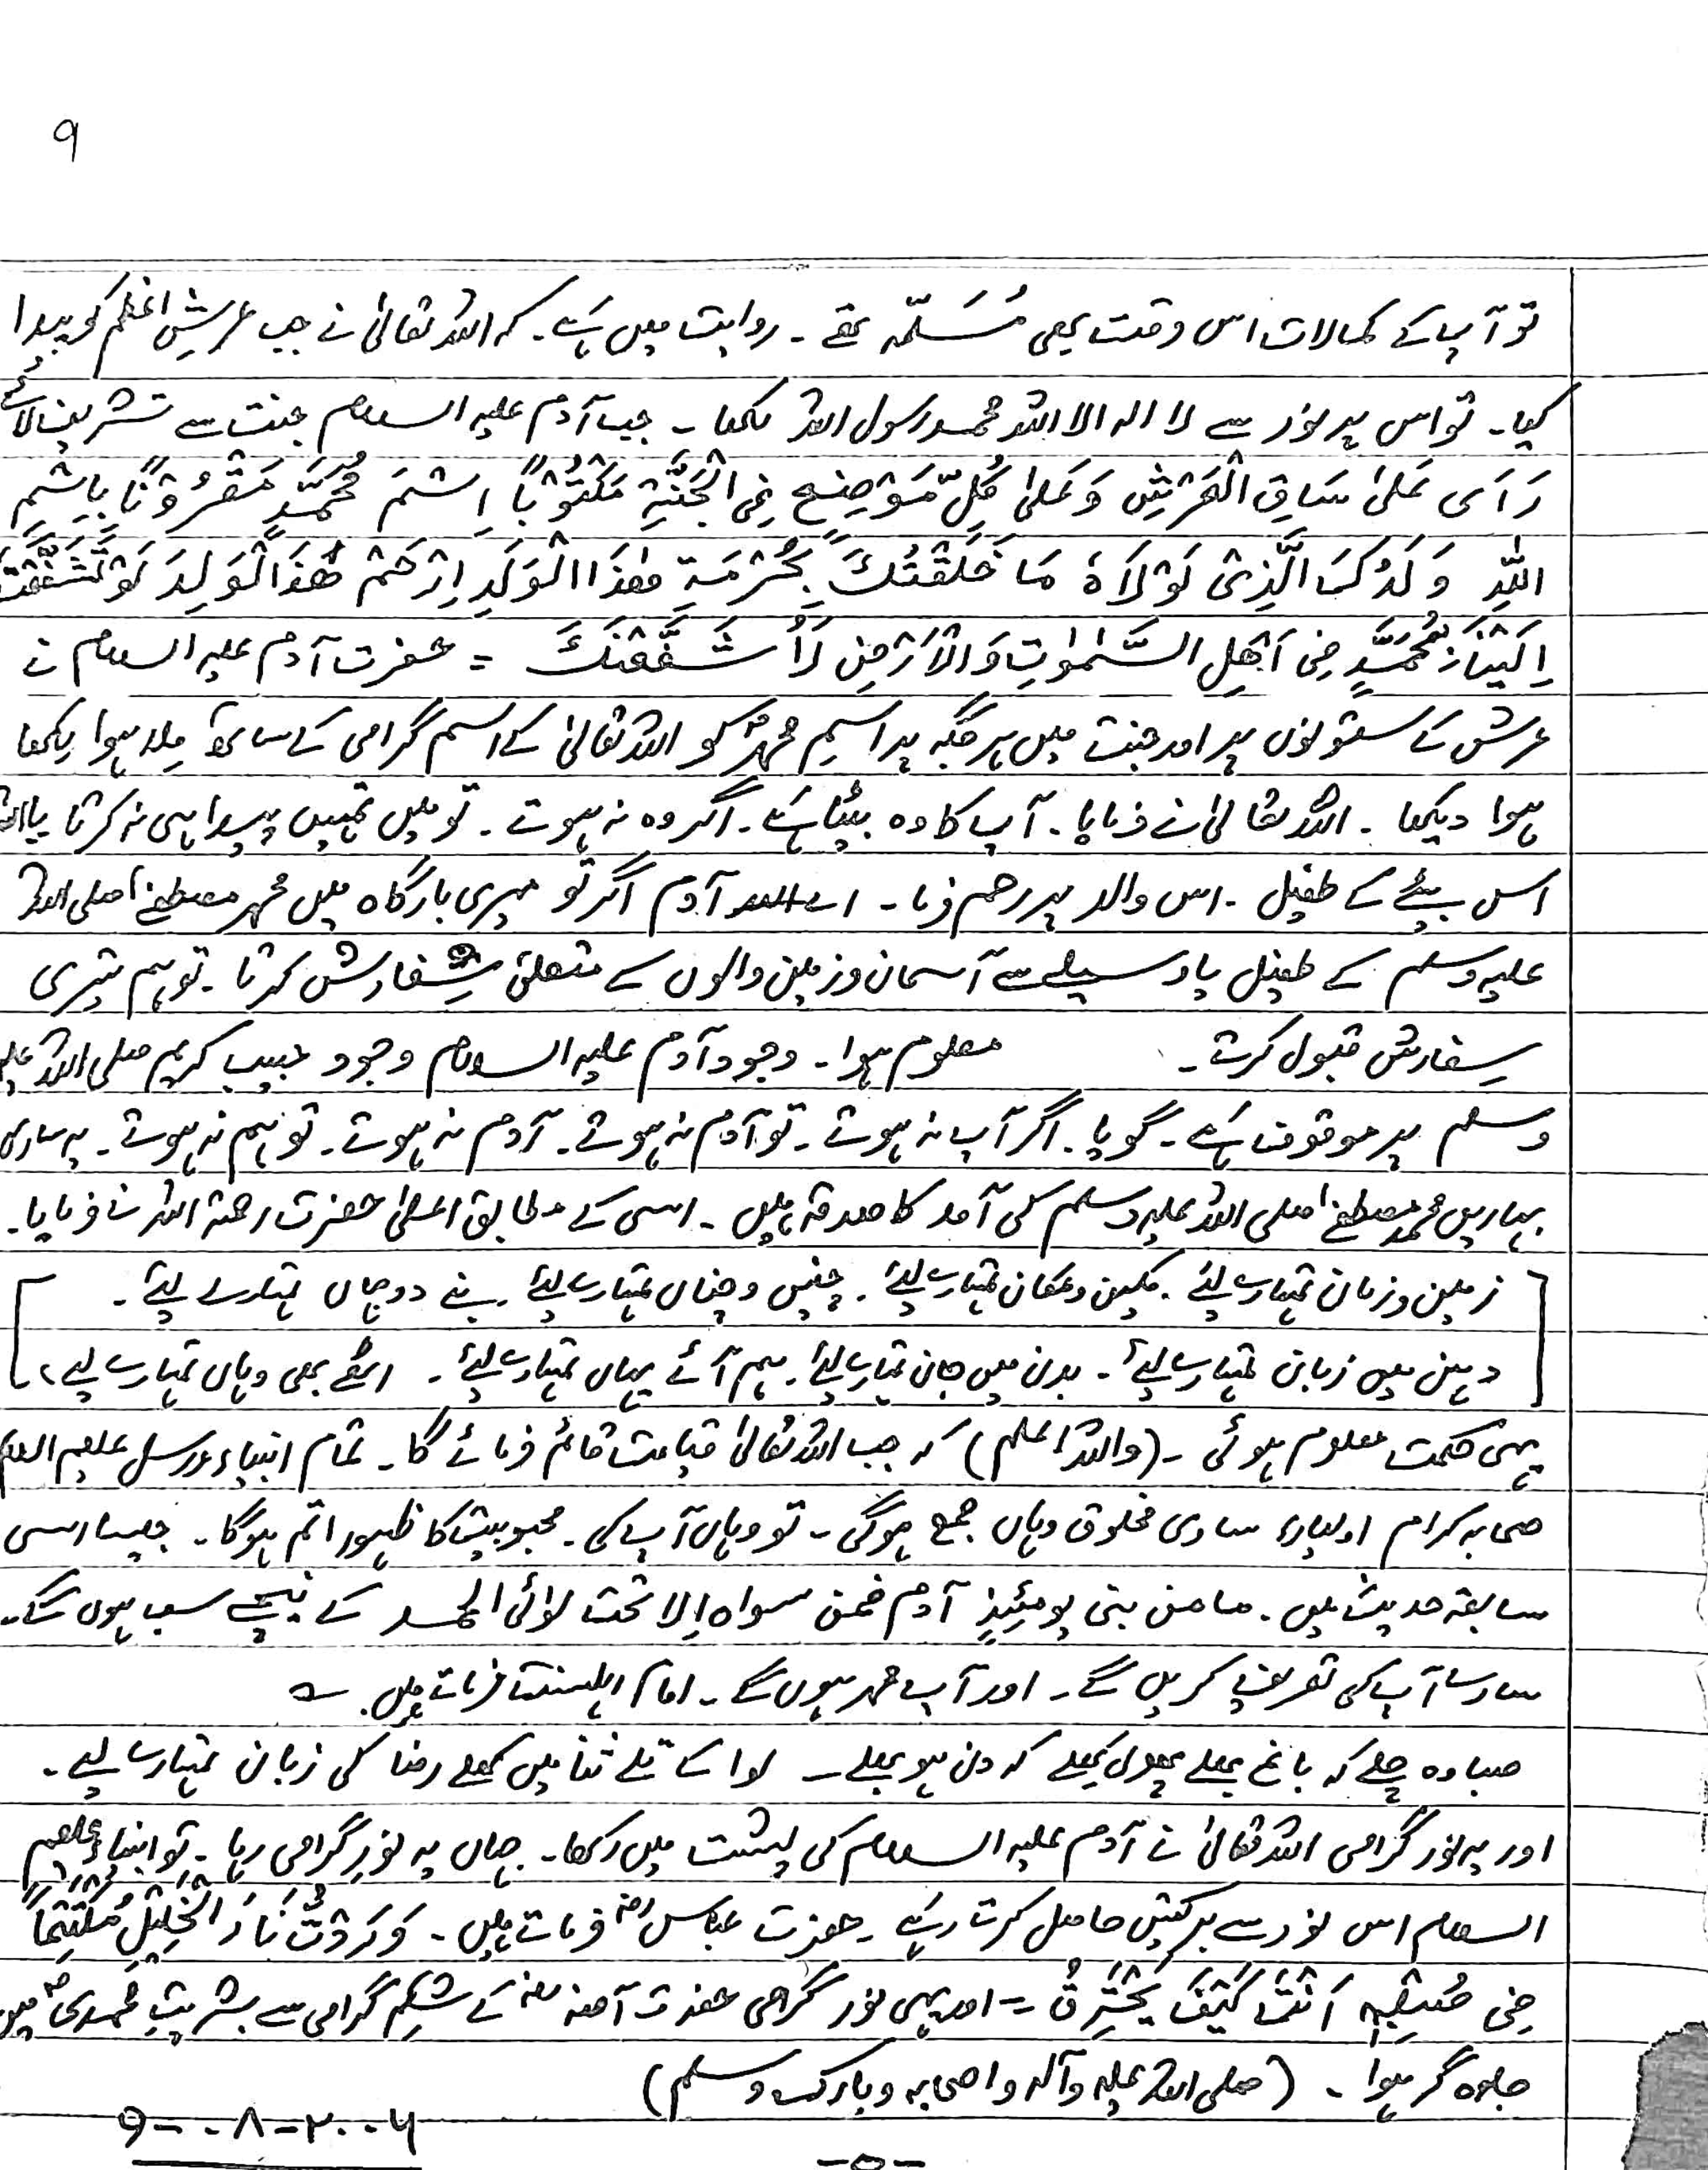 ۹
تو آپ کے کمالات اس وقت بھی مُسَلّمہ تھے ۔ روایت میں ہَے ۔ کہ اللہ تعالیٰ نے جب عرشِ اعظم کو پیدا
کیا ۔ تو اس پر نور سے لا الہ الا اللہ محمد رسول اللہ لکھا ۔ جب آدم علیہ السلام جنت سے تشریف لائے
رَاَی عَلیٰ سَاقِ الْعَرْشِ وَ عَلیٰ کُلِّ مَوْضِعٍ فِی الْجَنَّۃِ مَکْتُوْباً اِسْمَ مُحَمَّدٍ مَقْرُوْناً بِاسْمِ
اللّٰہِ وَلَدُکَ الَّذِیْ لَوْلَاہُ مَا خَلَقْتُکَ بِحُرْمَۃِ ھٰذَا الْوَلَدِ اِرْحَمْ ھٰذَا الْوَلِدَ لَوْ تَشَفَّعْتَ
اِلَیْنَا بِمُحَمَّدٍ فِی اَھْلِ السَّمٰوٰتِ وَالْاَرْضِ لَأَ شَفَّعْنَکَ = حضرت آدم علیہ السلام نے
عرش کے ستونوں پر اور جنت میں ہر جگہ پر اسمِ محمدؐ کو اللہ تعالیٰ کے اسم گرامی کے ساتھ مِلا ہوا لِکھا
ہوا دیکھا ۔ اللہ تعالیٰ نے فرمایا ۔ آپ کا وہ بیٹا ہَے ۔ اگر وہ نہ ہوتے ۔ تو میں تمہیں پیدا ہی نہ کرتا یا اللہ
اس بیٹے کے طفیل ۔ اس والد پر رحم فرما ۔ اے آدم اگر تو میری بارگاہ میں محمد مصطفےٰ صلی اللہ
علیہ وسلم کے طفیل یا وسیلے سے آسمان و زمین والوں کے متعلق سِفارش کرتا ۔ تو ہم تیری
سِفارش قبول کرتے ۔ معلوم ہوا ۔ وجود آدم علیہ السلام وجود حبیب کریم صلی اللہ علیہ
وسلم پر موقوف ہَے ۔ گویا ۔ اگر آپ نہ ہوتے ۔ تو آدم نہ ہوتے ۔ آدم نہ ہوتے ۔ تو ہم نہ ہوتے ۔ یہ ساری
بہاریں محمد مصطفےٰ صلی اللہ علیہ وسلم کی آمد کا صدقہ ہیں ۔ اسی کے مطابق اعلیٰ حضرت رحمۃ اللہ نے فرمایا ۔
[ زمین و زمان تمہارے لئے ۔ مکین و مکان تمہارے لئے ۔ چنیں و چناں تمہارے لئے ۔ بنے دو جہاں تمہارے لیے ۔
دہن میں زبان تمہارے لیے ۔ بدن میں جان تمہارے لئے ۔ ہم آئے یہاں تمہارے لیے ۔ اٹھے بھی وہاں تمہارے لیے ]
یہی حکمت معلوم ہوئی ۔ (واللہ اعلم) کہ جب اللہ تعالیٰ قیامت قائم فرمائے گا ۔ تمام انبیاء و رسل علیہم السلام
صحابہ کرام اولیاء ساری مخلوق وہاں جمع ہوگی ۔ تو وہاں آپ کی ۔ محبوبیت کا ظہور اتم ہوگا ۔ جیسا اسی
سابقہ حدیث میں ۔ ما من بنی یومئِذٍ آدم فمن سواہ اِلا تحت لوائی الحمد کے نیچے سب ہوں گے ۔
سارے آپ کی تعریف کریں گے ۔ اور آپ محمد ہوں گے ۔ امام اہلسنت فرماتے ہیں ۔
صبا وہ چلے کہ باغ بھلے پھول کھلے کہ دن ہو بھلے ۔ لوا کے تلے ثنا میں کھلے رضا کی زبان تمہارے لیے ۔
اور یہ نور گرامی اللہ تعالیٰ نے آدم علیہ السلام کی پشت میں رکھا ۔ جہاں یہ نورِ گرامی رہا ۔ تو انبیاء علیھم
السلام اس نور سے برکتیں حاصل کرتے رہَے ۔ حضرت عباس رضہ فرماتے ہیں ۔ وَرَدْتَّ نَارَ الْخَلِیْلِ مُکْتَتِماً
فِی صُلْبِہٖ اَنْتَ کَیْفَ یَحْتَرِقُ = اور یہی نور گرامی حضرت آمنہ رضہ کے شکمِ گرامی سے بشریتِ محمدیؐ میں
جلوہ گر ہوا ۔ (صلی اللہ علیہ وآلہ واصحابہ وبارک وسلم)
۹-۰۸-۲۰۰۶